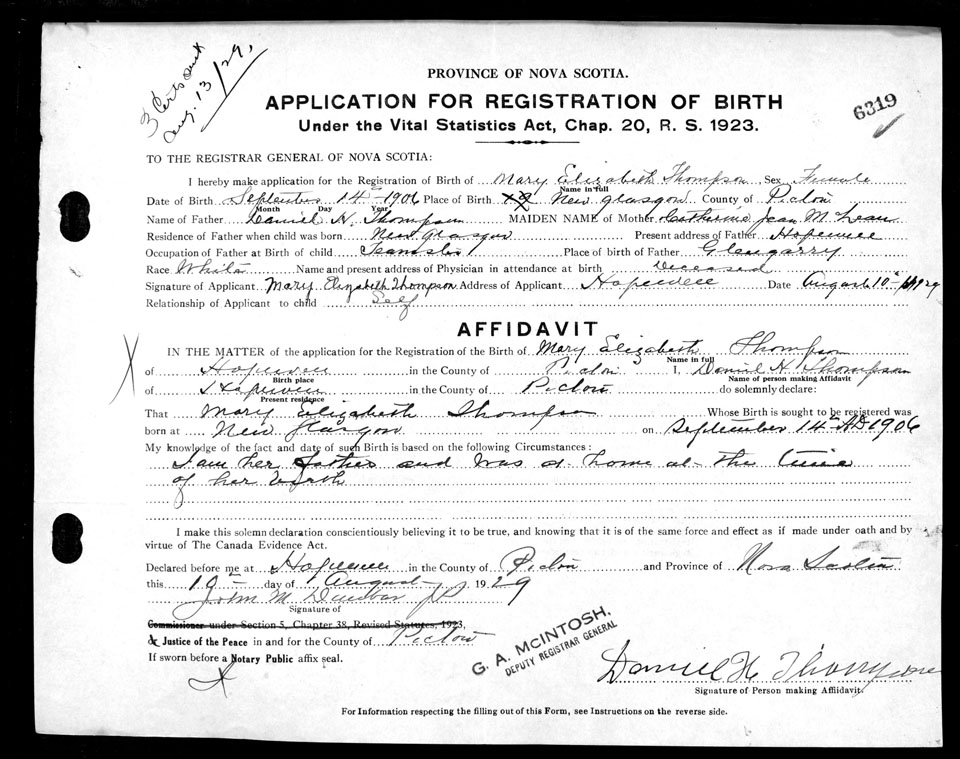 3 Certs sent
Aug. 13/29.
PROVINCE OF NOVA SCOTIA.
APPLICATION FOR REGISTRATION OF BIRTH
6319
Under the Vital Statistics Act, Chap. 20, R. S. 1923.
TO THE REGISTRAR GENERAL OF NOVA SCOTIA:
I hereby make application for the Registration of Birth of Mary Elizabeth Thompson Sex Female
Name in full
Date of Birth September 14th 1906 Place of Birth New Glasgow County of Pictou
Month Day Year
Name of Father Daniel H. Thompson MAIDEN NAME of Mother Catherine Jean McLean
Residence of Father when child was born New Glasgow Present address of Father Hopewell
Occupation of Father at Birth of child Teamster Place of birth of Father Glengarry
Race White Name and present address of Physician in attendance at birth Deceased
Signature of Applicant Mary Elizabeth Thompson Address of Applicant Hopewell Date August 10th 1929
Relationship of Applicant to child Self
AFFIDAVIT
IN THE MATTER of the application for the Registration of the Birth of Mary Elizabeth Thompson
Name in full
of Hopewell in the County of Pictou I, Daniel H Thompson
Birth place Name of person making Affidavit
of Hopewell in the County of Pictou do solemnly declare:
Present residence
That Mary Elizabeth Thompson Whose Birth is sought to be registered was
born at New Glasgow on September 14th AD 1906
My knowledge of the fact and date of such Birth is based on the following Circumstances:
I am her father and was at home at the time
of her birth
I make this solemn declaration conscientiously believing it to be true, and knowing that it is of the same force and effect as if made under oath and by
virtue of The Canada Evidence Act.
Declared before me at Hopewell in the County of Pictou and Province of Nova Scotia
this 10th day of August 1929
John M Dunbar JP
Signature of
Commissioner under Section 5, Chapter 38, Revised Statutes, 1923,
Justice of the Peace in and for the County of Pictou
If sworn before a Notary Public affix seal.
G. A. McINTOSH,
DEPUTY REGISTRAR GENERAL
Daniel H Thompson
Signature of Person making Affidavit.
For Information respecting the filling out of this Form, see Instructions on the reverse side.